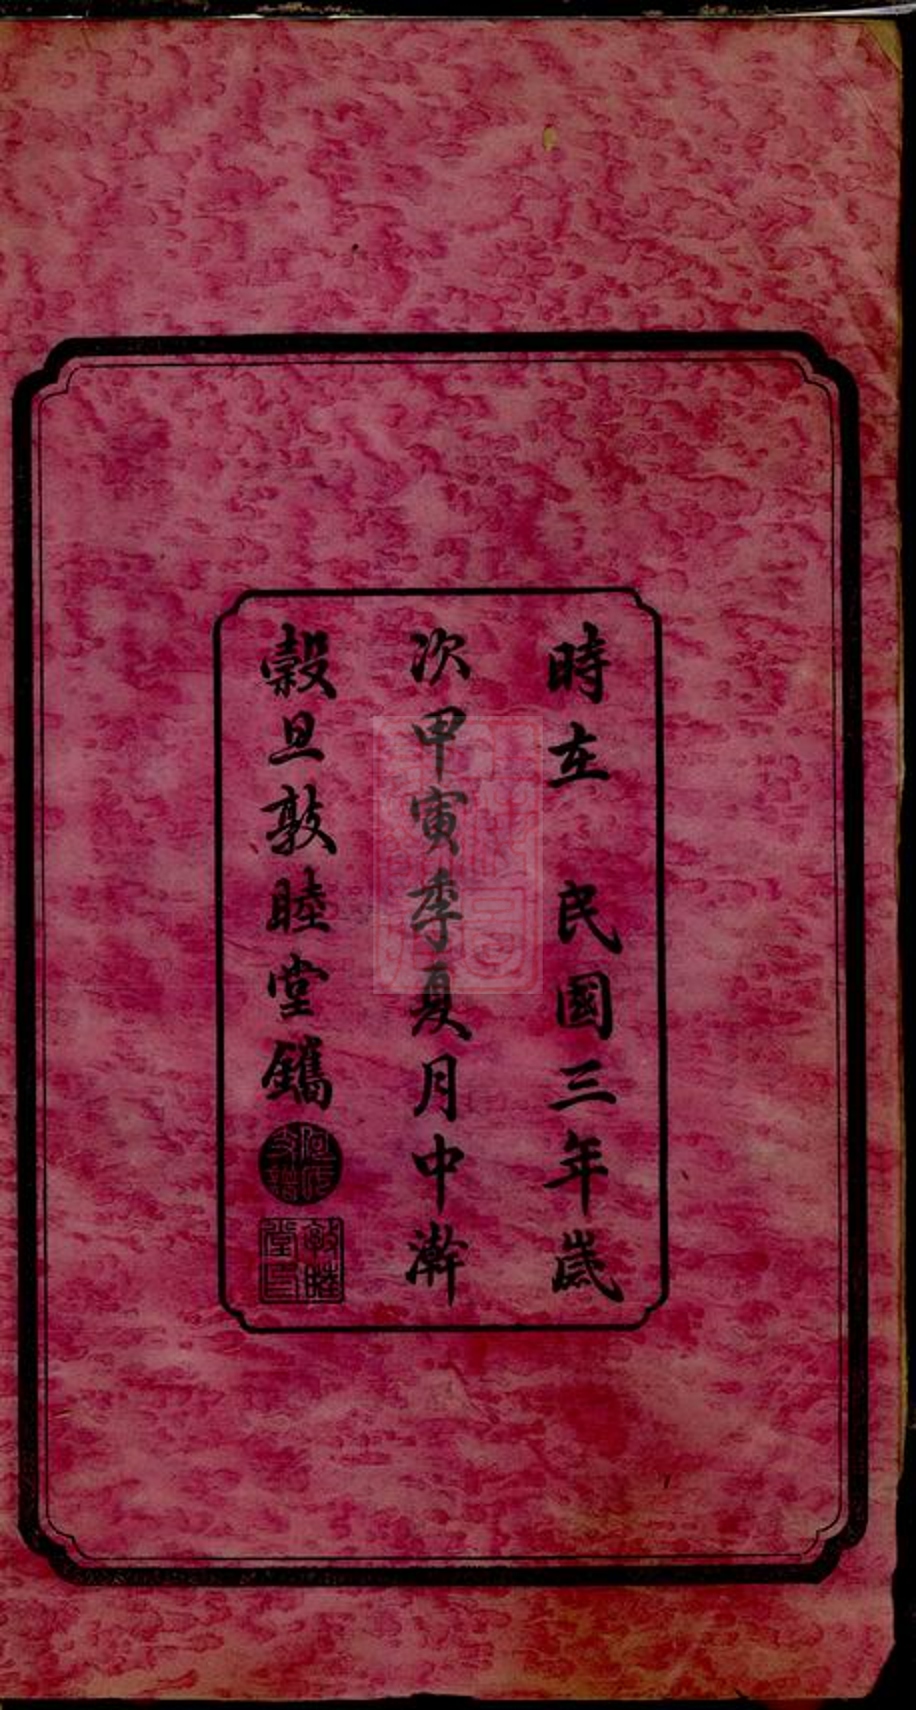 時在 民國三年歲
次甲寅季夏月中澣
穀旦敦睦堂鐫
敦睦堂印